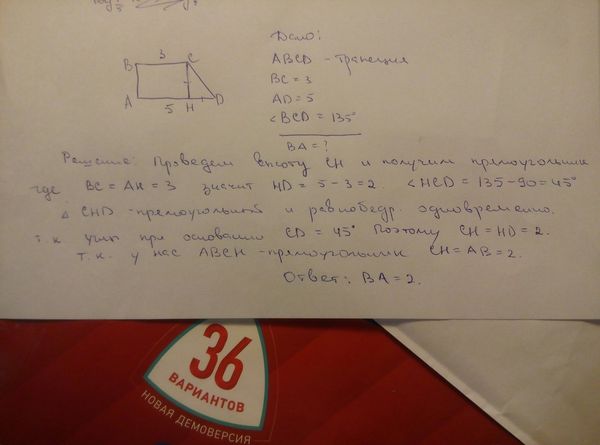 Дано:
ABCD - трапеция
BC = 3
AD = 5
∠BCD = 135°
BA = ?
3
B C
A 5 H D
Решение: Проведем высоту CH и получим прямоугольник
где BC = AH = 3 значит HD = 5-3=2. ∠HCD = 135-90=45°
△ CHD - прямоугольный и равнобедр. одновременно.
т.к. углы при основании CD = 45° Поэтому CH = HD = 2.
т.к. у нас ABCH - прямоугольник CH = AB = 2.
Ответ: BA = 2.
36
ВАРИАНТОВ
НОВАЯ ДЕМОВЕРСИЯ